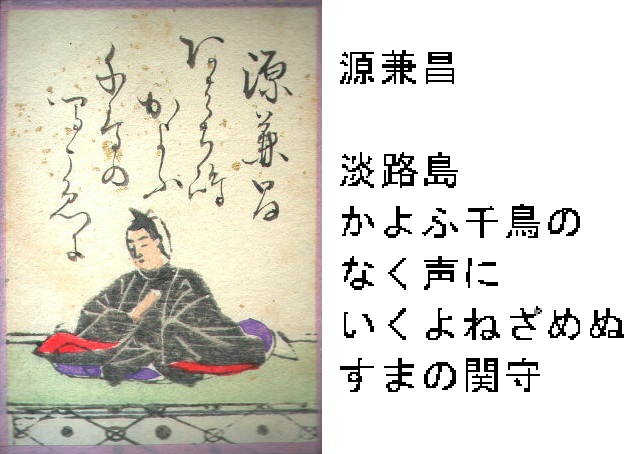 源兼昌
あはち嶋
かよふ
千鳥の
鳴こゑに
源兼昌
淡路島
かよふ千鳥の
なく声に
いくよねざめぬ
すまの関守